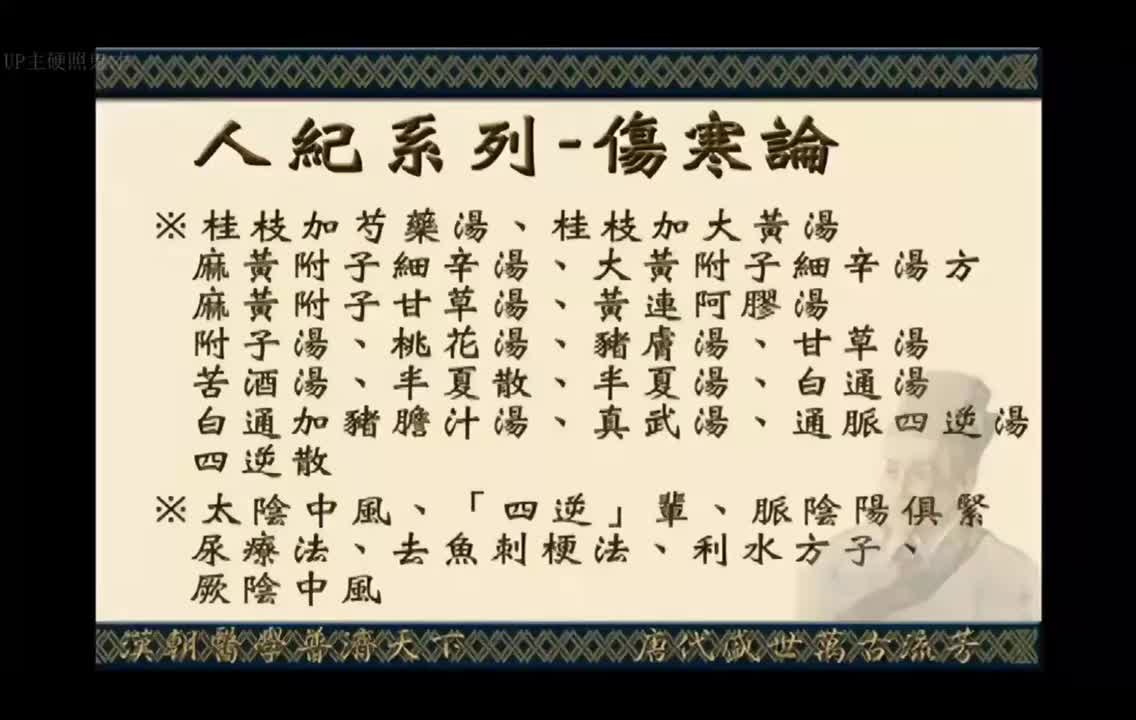 UP主硬照
人紀系列-傷寒論
※桂枝加芍藥湯、桂枝加大黃湯
麻黃附子細辛湯、大黃附子細辛湯方
麻黃附子甘草湯、黃連阿膠湯
附子湯、桃花湯、豬膚湯、甘草湯
苦酒湯、半夏散、半夏湯、白通湯
白通加豬膽汁湯、真武湯、通脈四逆湯
四逆散
※太陰中風、「四逆」輩、脈陰陽俱緊
尿療法、去魚刺梗法、利水方子、
厥陰中風
漢朝醫學普濟天下 唐代盛世萬古流芳